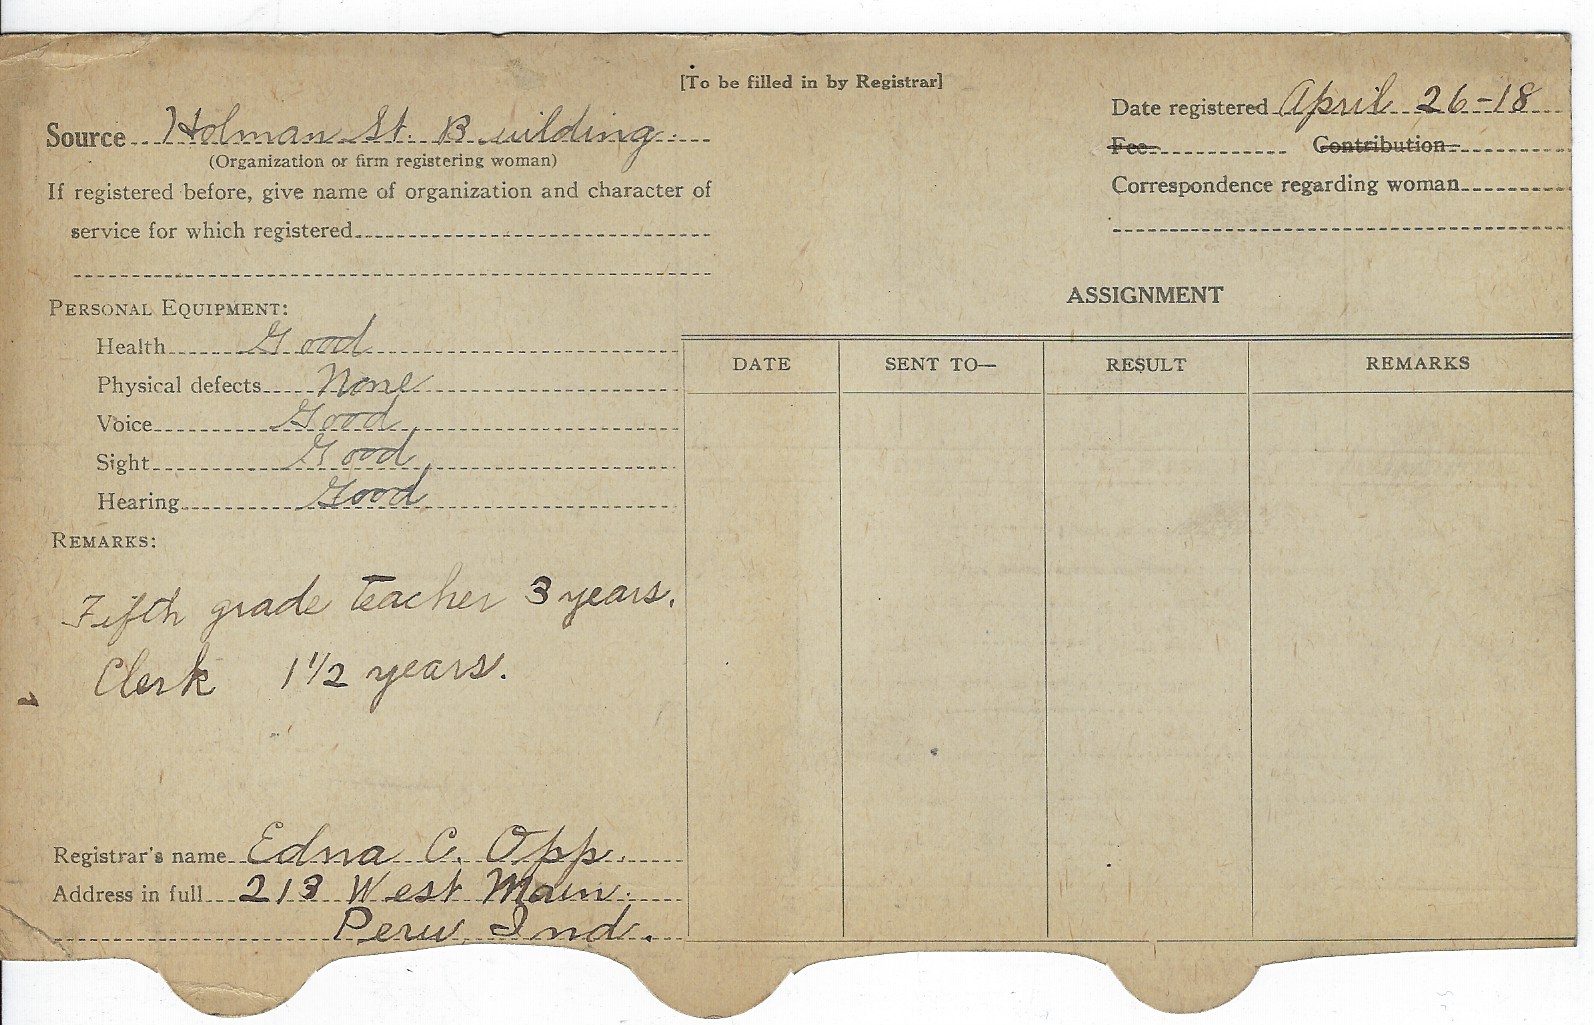 [To be filled in by Registrar]
Source Holman St. Building.
(Organization or firm registering woman)
If registered before, give name of organization and character of
service for which registered
Date registered April 26-18
Fee Contribution
Correspondence regarding woman
PERSONAL EQUIPMENT:
Health Good
Physical defects None
Voice Good
Sight Good
Hearing Good
REMARKS:
Fifth grade teacher 3 years.
Clerk 1 1/2 years.
Registrar's name Edna C. Opp.
Address in full 213 West Main.
Peru Ind.
ASSIGNMENT
DATE SENT TO— RESULT REMARKS